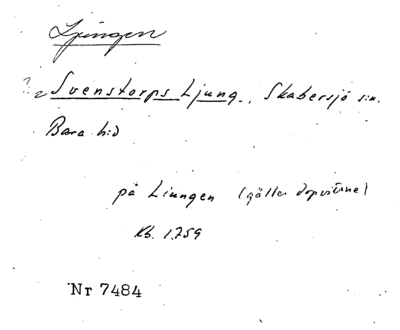 Ljungen
? Svenstorps Ljung, Skabersjö sn.
Bara hd
på Liungen (gäller dopvittne)
Kb. 1759
Nr 7484